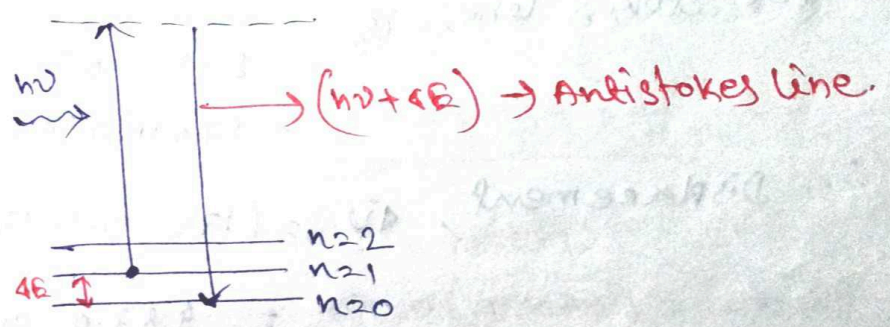 hν
(hν+ΔE) → Antistokes line.
n=2
n=1
ΔE
n=0